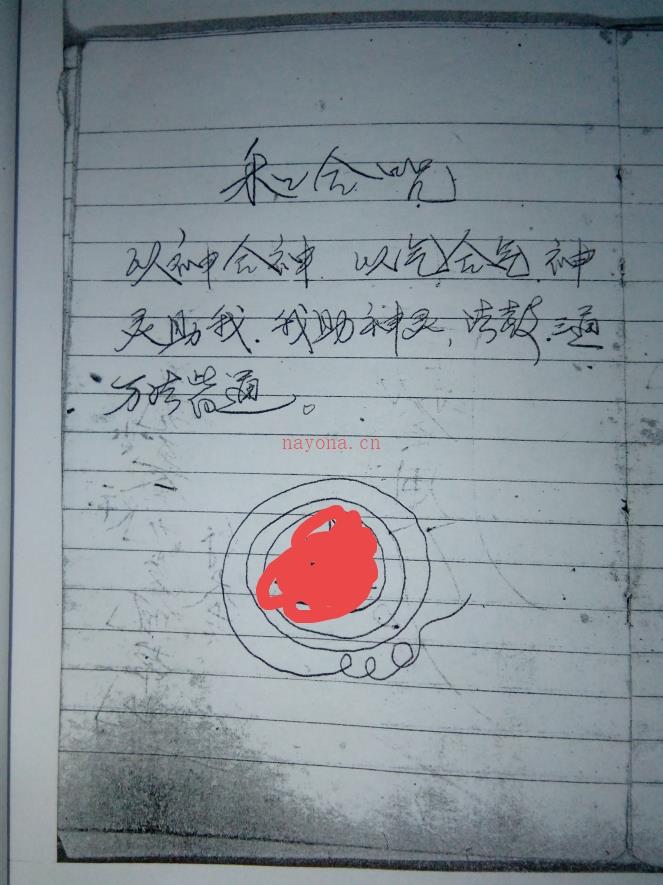 和合咒
以神合神 以气合气 神
灵助我.我助神灵,法鼓.三通
万法皆通。
nayona.cn